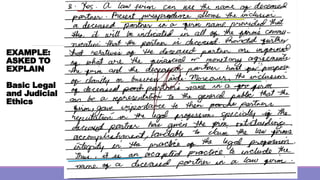 EXAMPLE:
ASKED TO
EXPLAIN
Basic Legal
and Judicial
Ethics
3. Yes. A law firm can use the name of deceased
partner. Present jurisprudence allows the inclusion
a deceased partner in a firm name provided that
the it will be indicated in all of the firm's commu-
nication that the partner is deceased
that relatives of the deceased partner are
of what are the financial or monetary agreements
the firm and the deceased partner had for purposes
of clarity or Moreover, the inclusion
of deceased partner's name in a law firm
can be a representation to the general public that the
firm gave importance to their partners
reputation in the legal profession specially if the
deceased partner has given the firm outstanding
accomplishment, to the law firm's
integrity in the practice of the legal profession.
Thus, it is an accepted practice to include the
name of a deceased partner in a law firm.